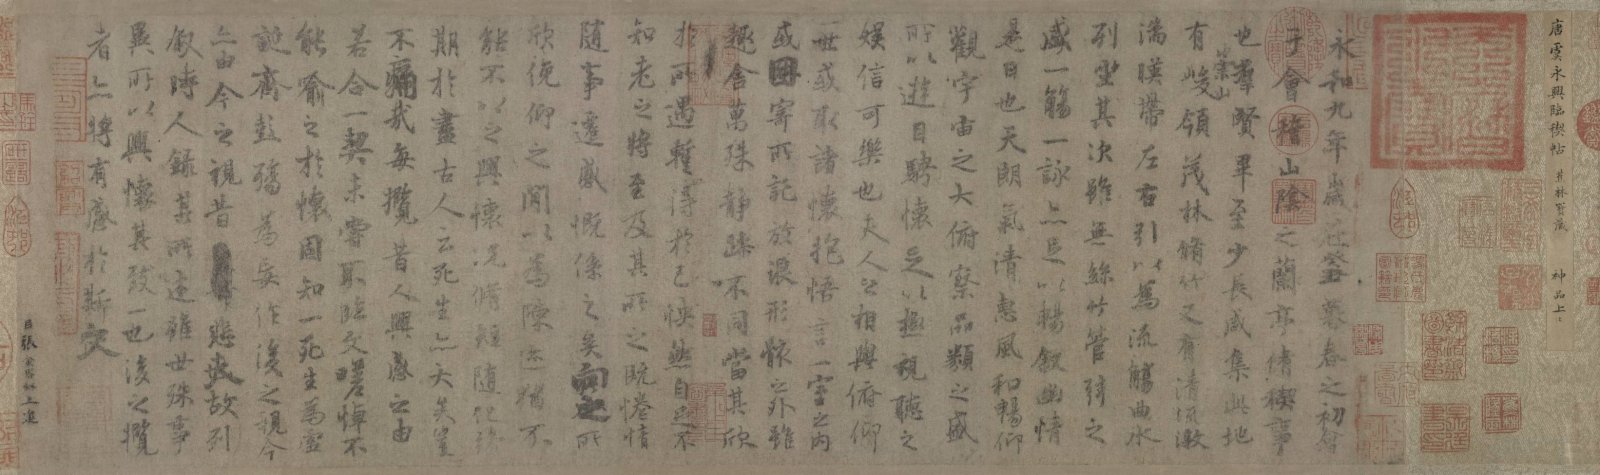 唐虞永興臨禊帖 董林居藏 神品上上
永和九年歲在癸丑暮春之初會
于會稽山陰之蘭亭脩禊事
也羣賢畢至少長咸集此地
有崇山峻領茂林脩竹又有清流激
湍暎帶左右引以為流觴曲水
列坐其次雖無絲竹管弦之
盛一觴一詠亦足以暢敘幽情
是日也天朗氣清惠風和暢仰
觀宇宙之大俯察品類之盛
所以遊目騁懷足以極視聽之
娛信可樂也夫人之相與俯仰
一世或取諸懷抱悟言一室之內
或因寄所託放浪形骸之外雖
趣舍萬殊靜躁不同當其欣
於所遇暫得於己怏然自足不
知老之將至及其所之既惓情
隨事遷感慨係之矣向之所
欣俛仰之間以為陳迹猶不
能不以之興懷況脩短隨化終
期於盡古人云死生亦大矣豈
不痛哉每攬昔人興感之由
若合一契未嘗不臨文嗟悼不
能喻之於懷固知一死生為虛
誕齊彭殤為妄作後之視今
亦由今之視昔悲夫故列
敘時人錄其所述雖世殊事
異所以興懷其致一也後之攬
者亦將有感於斯文
臣張金界奴上進